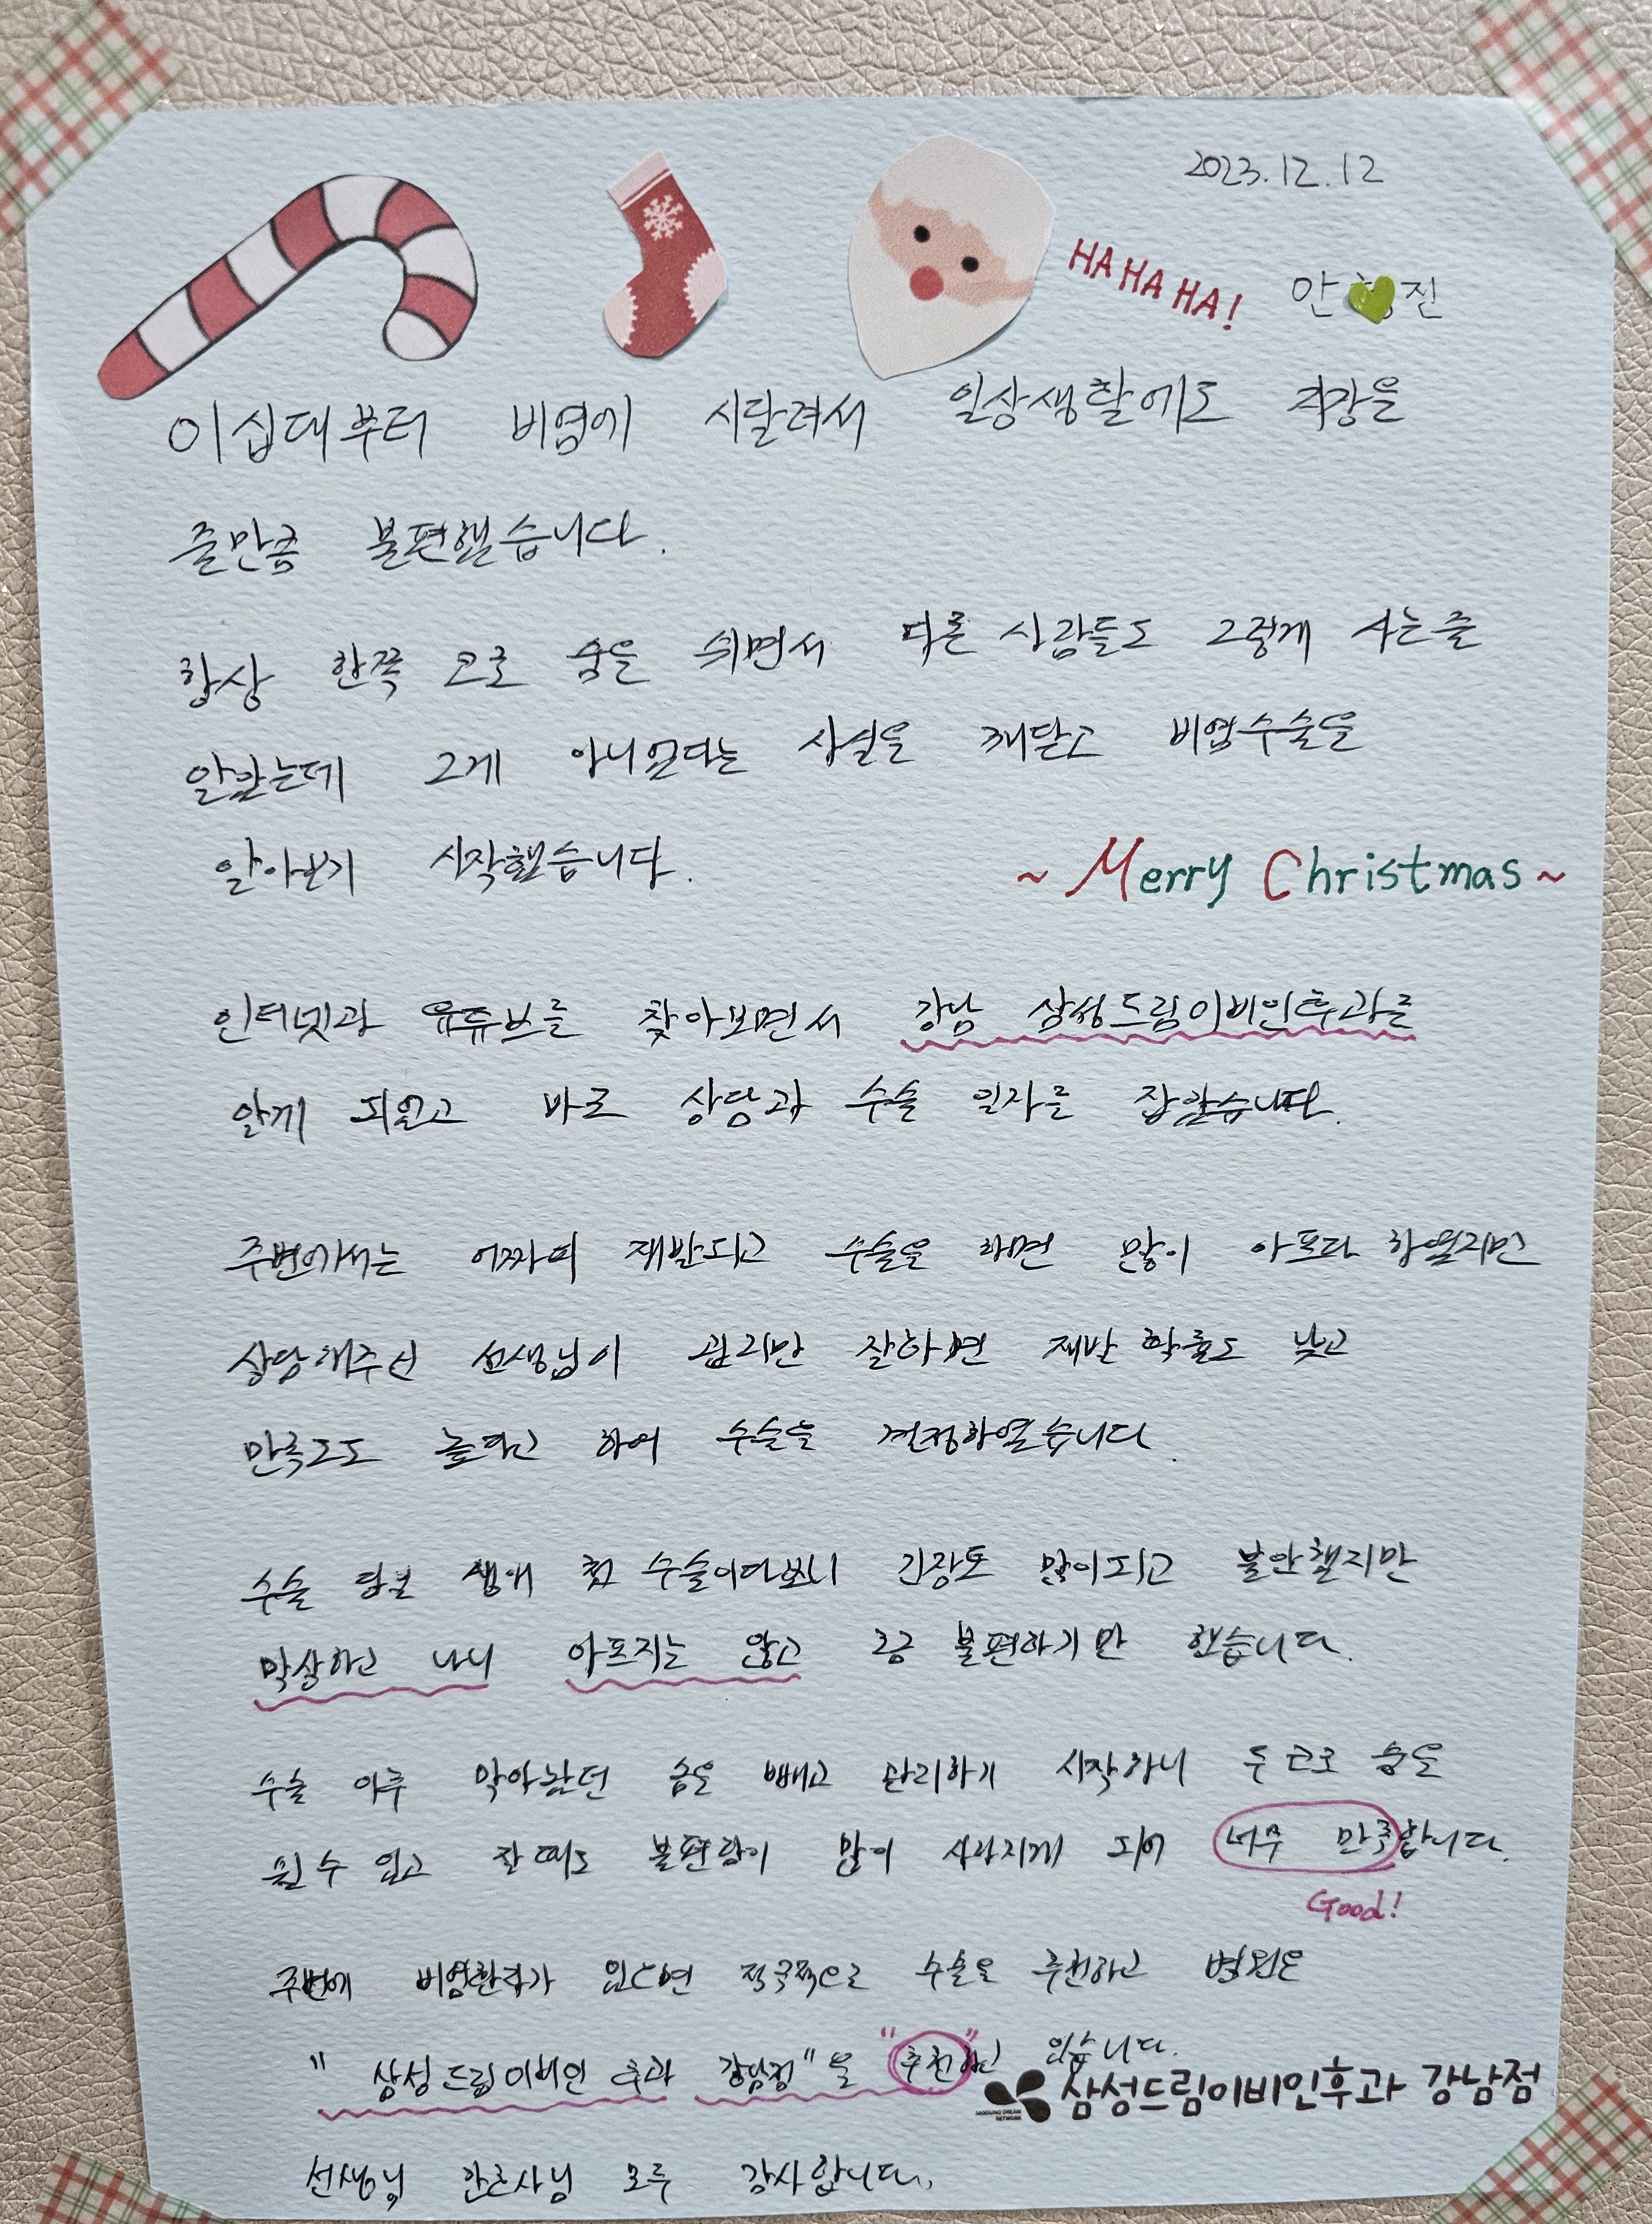 2023.12.12
HA HA HA!
안 진
이십대부터 비염에 시달려서 일상생활에도 지장을
줄만큼 불편했습니다.
항상 한쪽 코로 숨을 쉬면서 다른 사람들도 그렇게 사는줄
알았는데 그게 아니었다는 사실을 깨닫고 비염수술을
알아보기 시작했습니다.
~ Merry Christmas ~
인터넷과 유튜브를 찾아보면서 강남 삼성드림이비인후과를
알게 되었고 바로 상담과 수술 일자를 잡았습니다.
주변에서는 어짜피 재발되고 수술을 하면 많이 아프다 하였지만
상담해주신 선생님이 관리만 잘하면 재발 확률도 낮고
만족도도 높다고 하여 수술을 결정하였습니다.
수술 당일 생애 첫 수술이다보니 긴장도 많이되고 불안했지만
막상하고 나니 아프지는 않고 조금 불편하기만 했습니다.
수술 이후 막아놨던 솜을 빼고 관리하기 시작하니 두 코로 숨을
쉴 수 있고 잘 때도 불편함이 많이 사라지게 되어 너무 만족합니다.
Good!
주변에 비염환자가 있으면 적극적으로 수술을 추천하고 병원은
" 삼성드림이비인후과 강남점"을 "추천"하고 있습니다.
SAMSUNG DREAM NETWORK
삼성드림이비인후과 강남점
선생님 간호사님 모두 감사합니다.